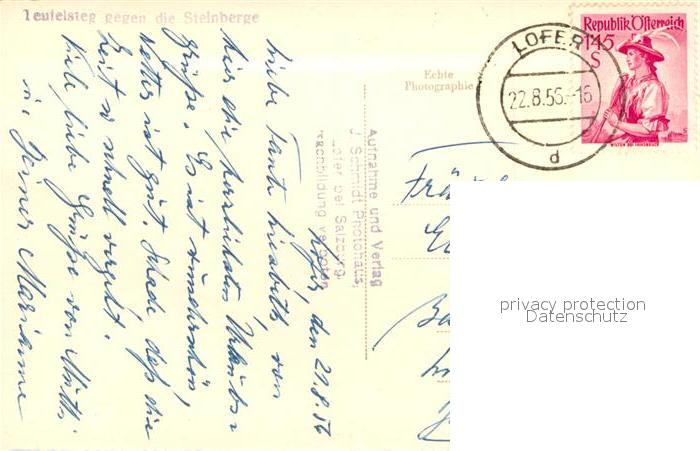 Teufelsteg gegen die Steinberge
Lofer, den 21.8.56
Liebe Tante Lisabeth, von
hier die herzlichsten Urlaubs-
grüße. Es ist wunderschön,
Wetter ist gut. Schade, daß die
Zeit so schnell vergeht.
Viele liebe Grüße von Mutti
u. Deiner Marianne
Echte
Photographie
Aufnahme und Verlag
J. Schmidt Photohaus,
Lofer bei Salzburg
Nachbildung verboten
LOFER
22.8.56.-16
d
Republik Österreich
1.45
S
WILTEN BEI INNSBRUCK
privacy protection
Datenschutz